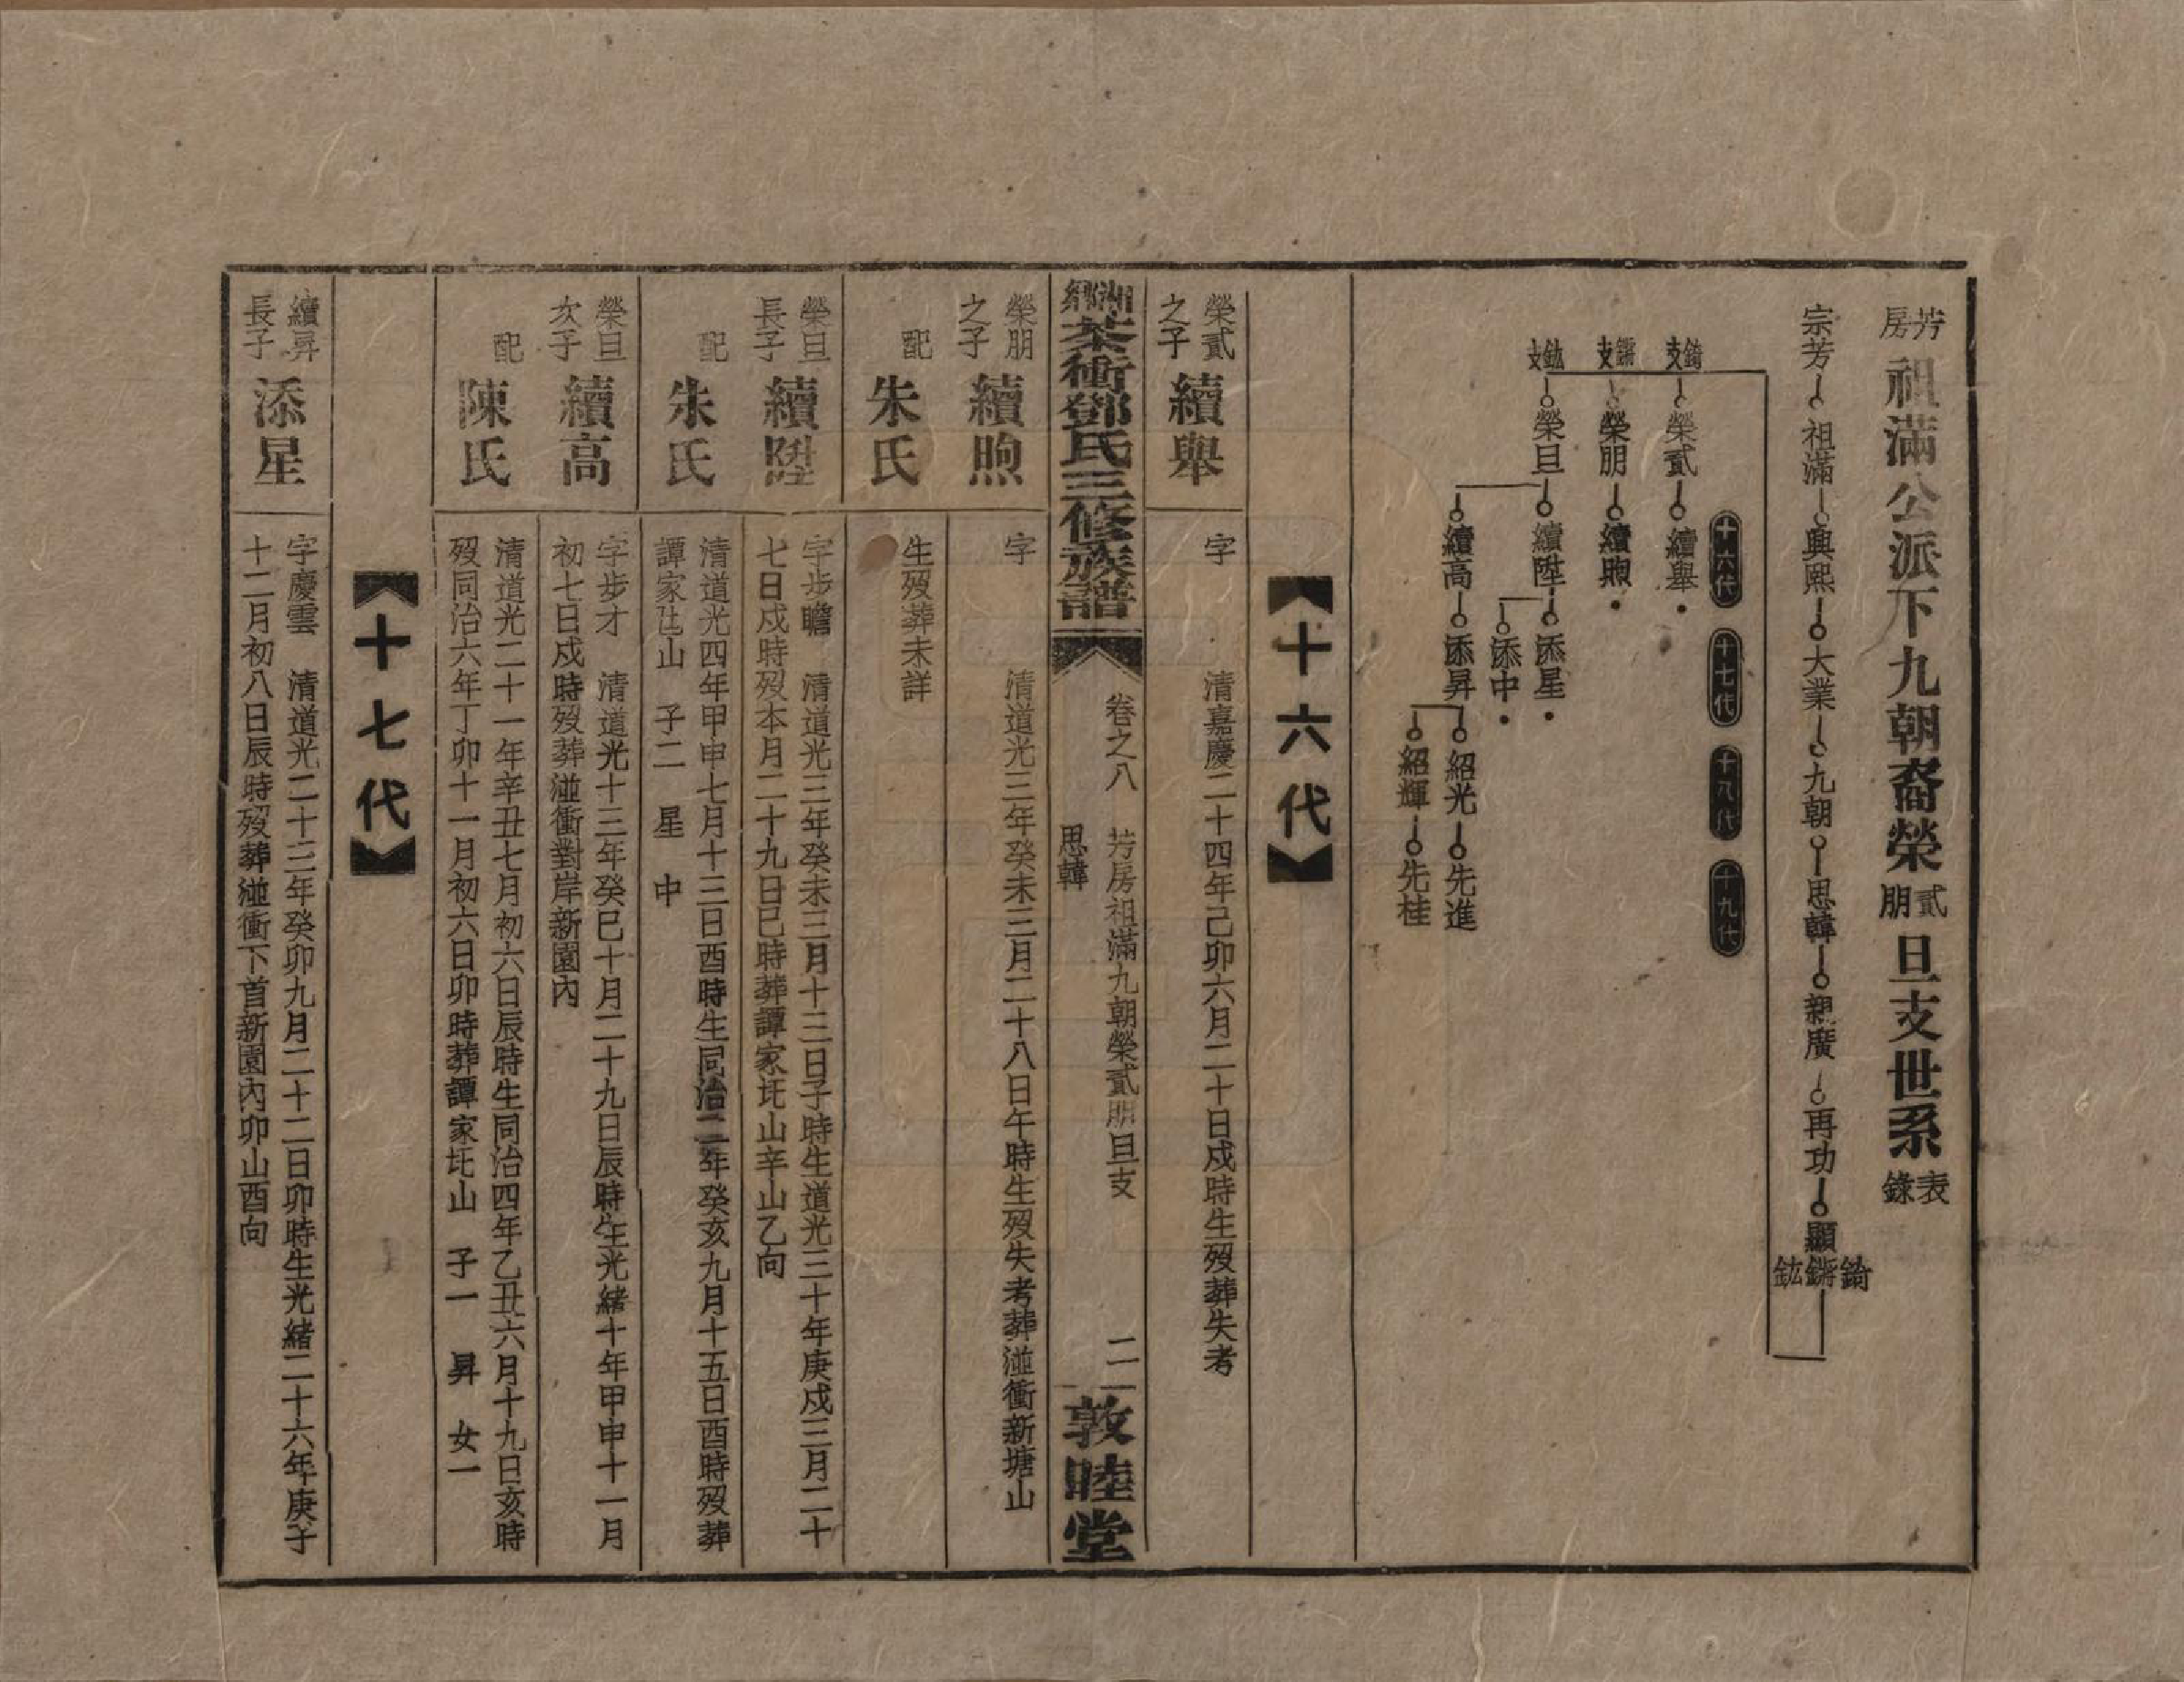 芳房祖滿公派下九朝裔榮貳朋旦支世系表錄
宗芳 祖滿 興熙 大業 九朝 思韓 親廣 再功 顯錡鏘鈜
十六代 十七代 十八代 十九代
錡支 榮貳 續舉
鏘支 榮朋 續煦
鈜支 榮旦 續陞 添星
添中
續高 添昇 紹光 先進
紹輝 先桂
十六代
榮貳之子 續舉 字 清嘉慶二十四年己卯六月二十日戌時生歿葬失考
湖鄉茶衝鄧氏三修族譜 卷之八 芳房祖滿九朝榮貳朋旦支 思韓 二 敦睦堂
榮朋之子 續煦 字 清道光三年癸未三月二十八日午時生歿失考葬湴衝新塘山
配 朱氏 生歿葬未詳
榮旦長子 續陞 字步瞻 清道光三年癸未三月十三日子時生道光三十年庚戌三月二十
七日戌時歿本月二十九日巳時葬譚家圫山辛山乙向
配 朱氏 清道光四年甲申七月十三日酉時生同治二年癸亥九月十五日酉時歿葬
譚家圫山 子二 星 中
榮旦次子 續高 字步才 清道光十三年癸巳十月二十九日辰時生光緒十年甲申十一月
初七日戌時歿葬湴衝對岸新園內
配 陳氏 清道光二十一年辛丑七月初六日辰時生同治四年乙丑六月十九日亥時
歿同治六年丁卯十一月初六日卯時葬譚家圫山 子一 昇 女一
十七代
續昇長子 添星 字慶雲 清道光二十三年癸卯九月二十二日卯時生光緒二十六年庚子
十二月初八日辰時歿葬湴衝下首新園內卯山酉向